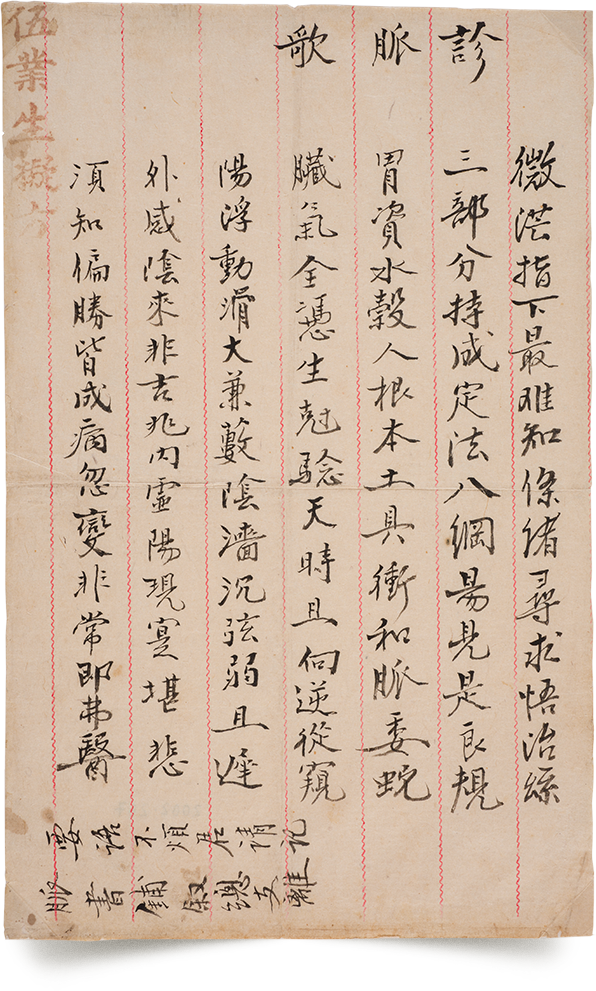 診脈歌
微茫指下最难知條緒尋求悟治絲
三部分持成定法八綱易見是良規
胃資水穀人根本土具衝和脈委蛇
臟氣全憑生尅驗天時且向逆從窺
陽浮動滑大兼數陰濇沉弦弱且遲
外感陰來非吉兆內虛陽現寔堪悲
須知偏勝皆成病忽變非常即弗醫
要語不煩君請記
脈書鋪叙總支離
伍業生擬方